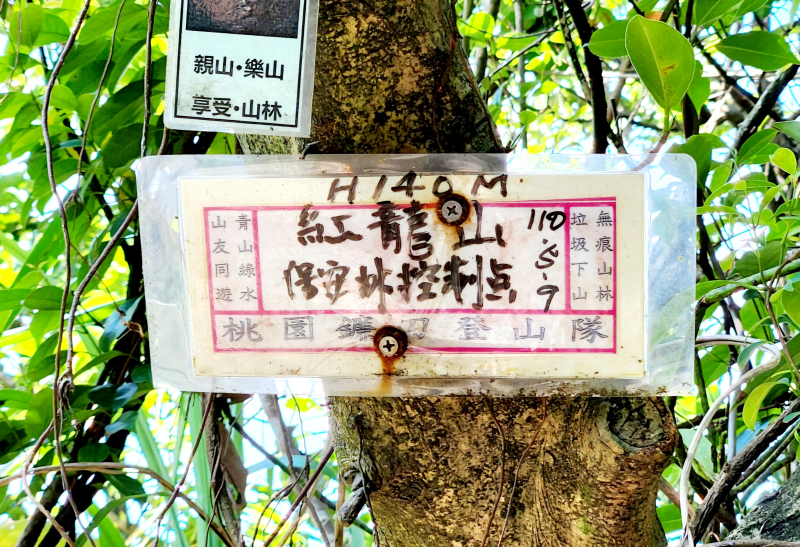 親山·樂山
享受·山林
H140M
青山綠水
山友同遊
紅龍山
保安林控制点
110.8.9
無痕山林
垃圾下山
桃園鐮刀登山隊